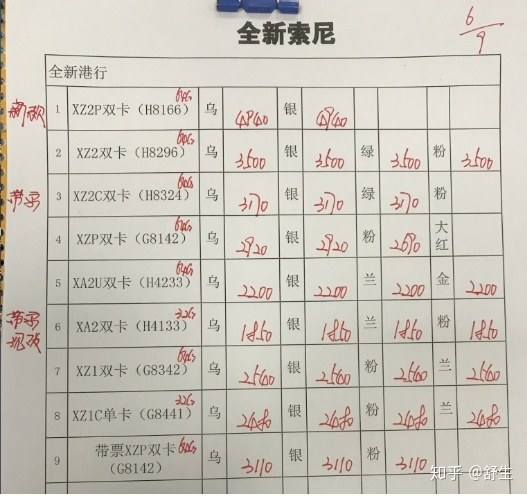 6/9
全新索尼
全新港行
新款 1 XZ2P双卡（H8166） 64G 乌 4940 银 4940
2 XZ2双卡（H8296） 64G 乌 3500 银 3500 绿 3500 粉 3500
带票 3 XZ2C双卡（H8324） 64G 乌 3170 银 3170 绿 3170 粉
4 XZP双卡（G8142） 64G 乌 2920 银 2920 粉 2690 大红
5 XA2U双卡（H4233） 64G 乌 2200 银 2200 兰 2200 金 2200
带票 现货 6 XA2双卡（H4133） 32G 乌 1850 银 1850 兰 1850 粉 1850
7 XZ1双卡（G8342） 64G 乌 2540 银 2540 粉 2540 兰 2540
8 XZ1C单卡（G8441） 32G 乌 2480 银 2480 粉 2480 兰 2480
9 带票XZP双卡（G8142） 64G 乌 3110 银 3110 粉 3110
知乎 @舒生